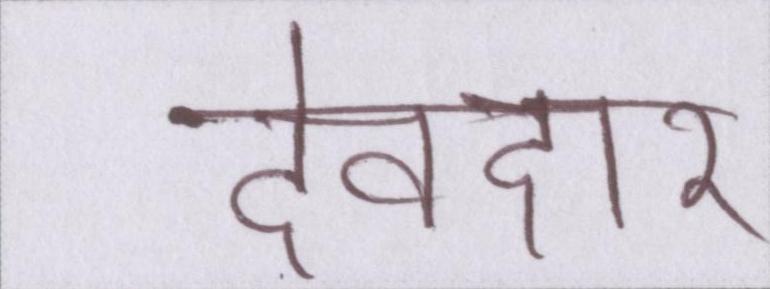 देवदार